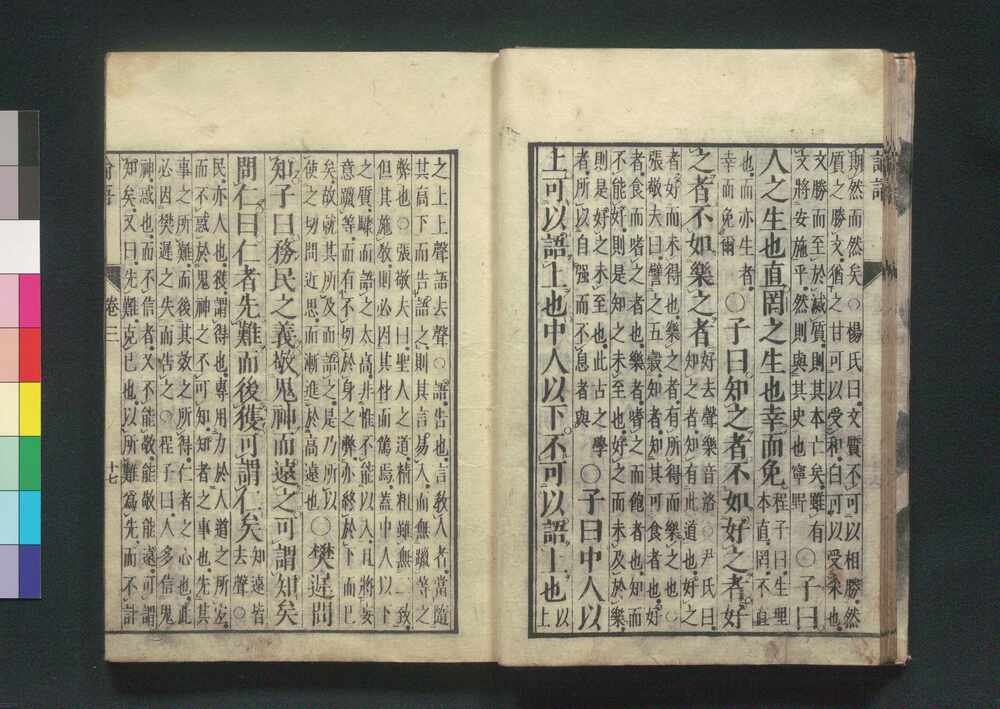 論語
期然而然矣○楊氏曰文質不可以相勝然
質之勝文猶之甘可以受和白可以受采也
文勝而至於滅質則其本亡矣雖有
文將安施乎然則與其史也寧野
○子曰
人之生也直罔之生也幸而免
程子曰生理
本直罔不直
也而亦生者
幸而免爾
○子曰知之者不如好之者好
之者不如樂之者
好去聲樂音洛○尹氏曰
知之者知有此道也好之
者好而未得也樂之者有所得而樂之也○
張敬夫曰譬之五穀知者知其可食者也好
者食而嗜之者也樂者嗜之而飽者也知而
不能好則是知之未至也好之而未及於樂
則是好之未至也此古之學
者所以自强而不息者與
○子曰中人以
上可以語上也中人以下不可以語上也
以
上
之上上聲語去聲○語告也言教人者當隨
其高下而告語之則其言易入而無躐等之
弊也○張敬夫曰聖人之道精粗雖無二致
但其施教則必因其材而篤焉蓋中人以下
之質驟而語之太高非惟不能以入且將妄
意躐等而有不切於身之弊亦終於下而已
矣故就其所及而語之是乃所以
使之切問近思而漸進於高遠也
○樊遲問
知子曰務民之義敬鬼神而遠之可謂知矣
問仁曰仁者先難而後獲可謂仁矣
知遠皆
去聲○
民亦人也獲謂得也專用力於人道之所宜
而不惑於鬼神之不可知知者之事也先其
事之所難而後其效之所得仁者之心也此
必因樊遲之失而告之○程子曰人多信鬼
神惑也而不信者又不能敬能敬能遠可謂
知矣又曰先難克己也以所難為先而不計
卷三
十七